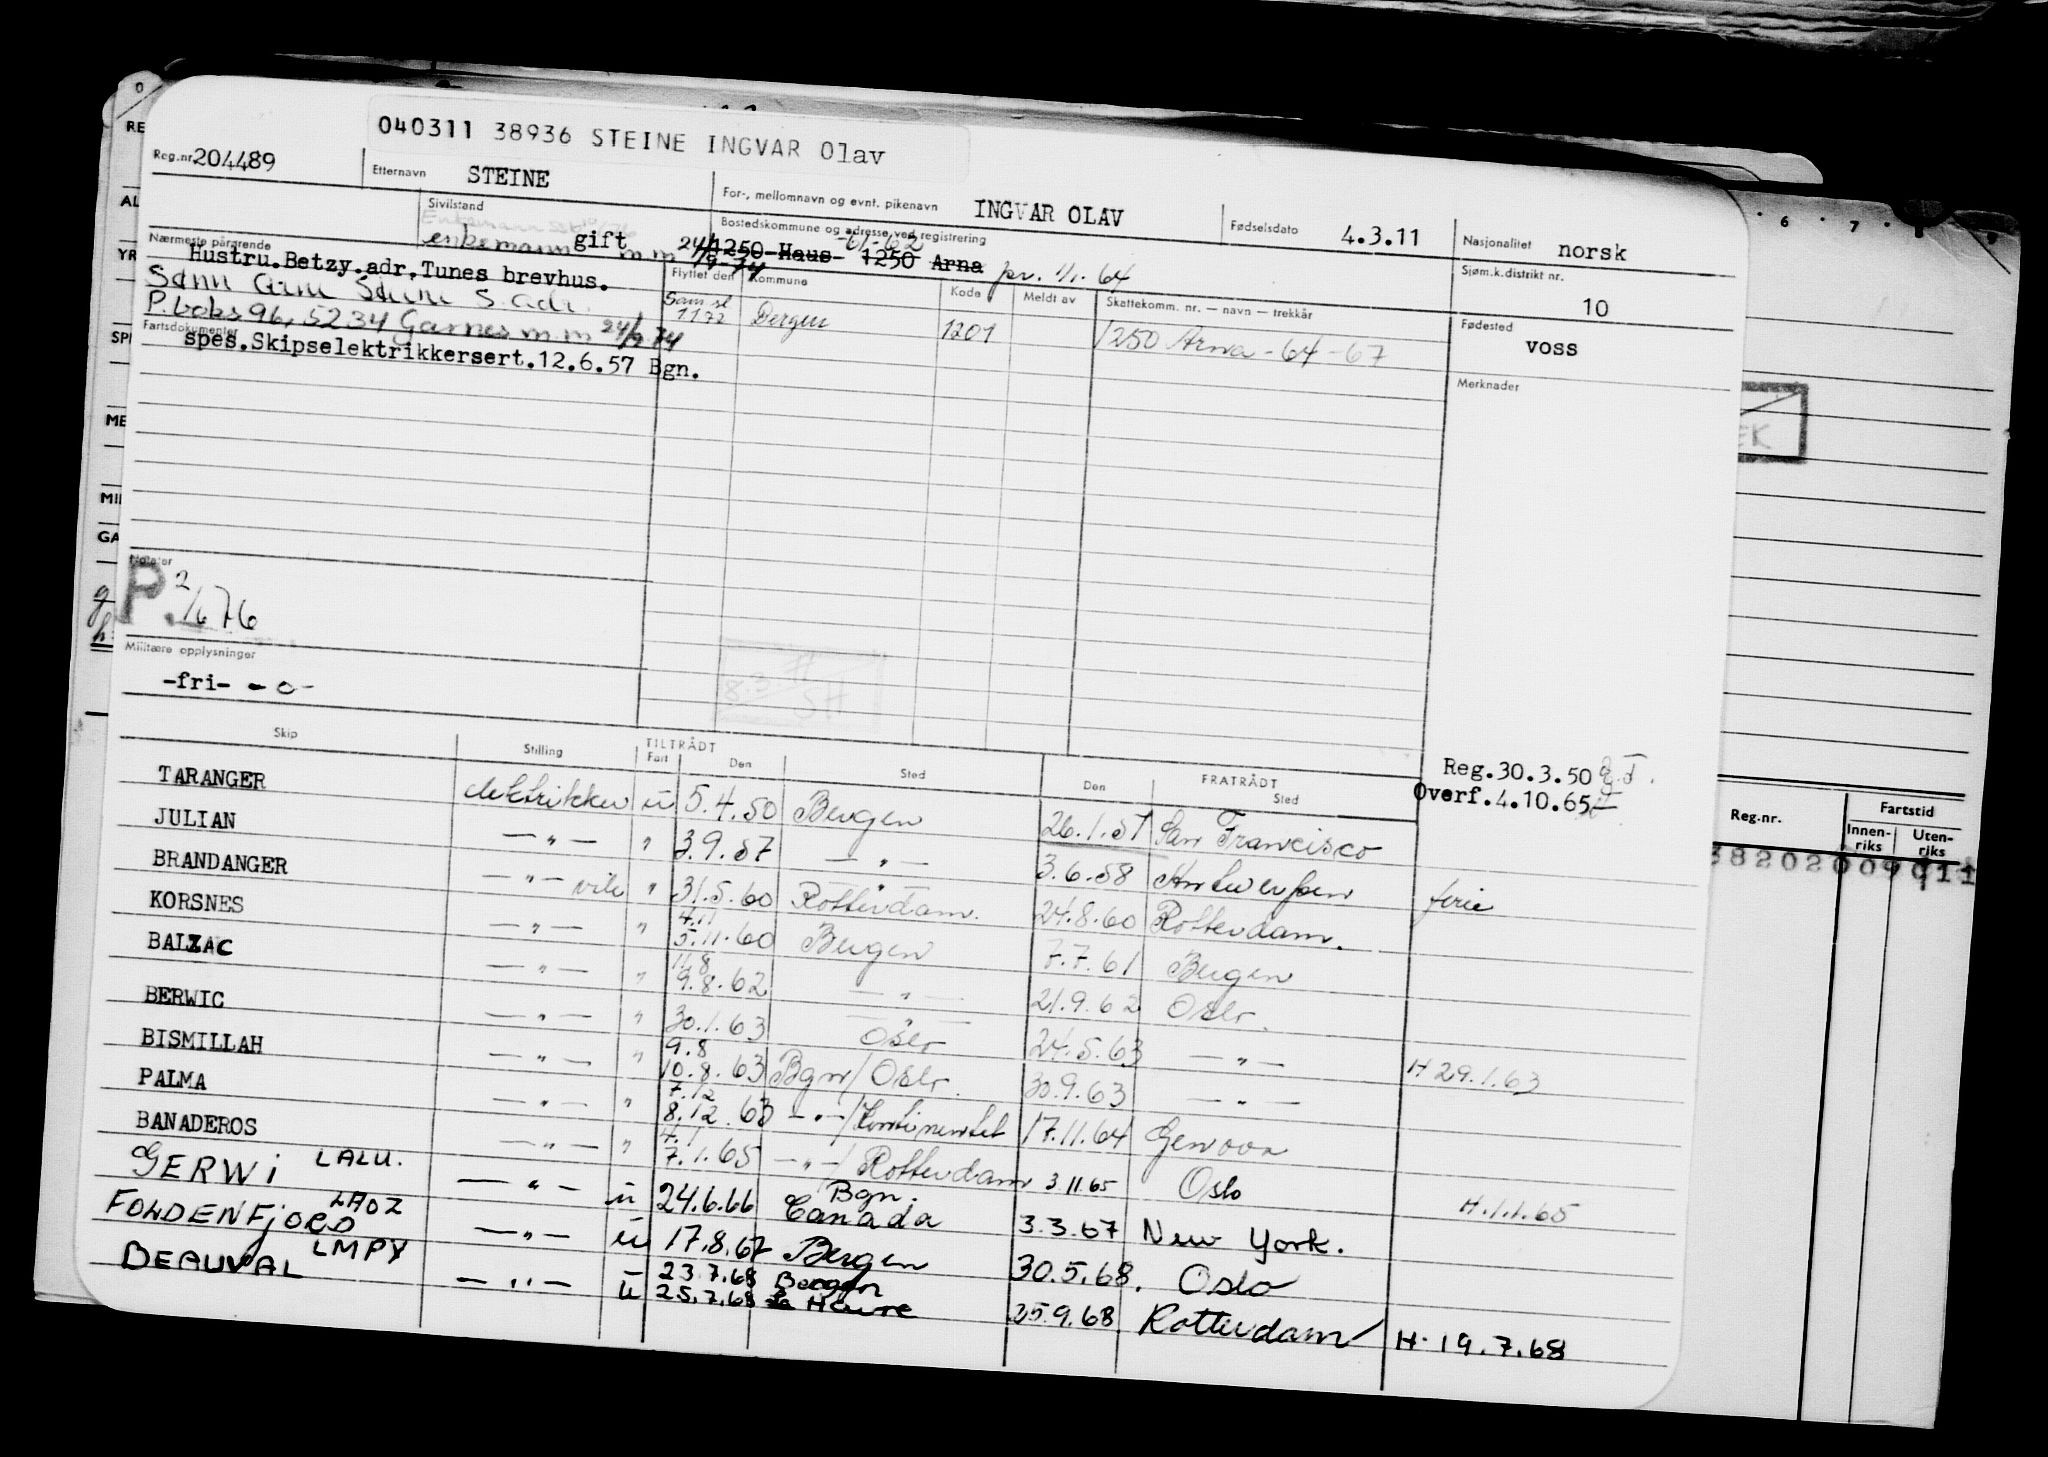 040311 38936 STEINE INGVAR Olav
Reg.nr. 204489 Etternavn STEINE For-, mellomnavn og evnt. pikenavn INGVAR OLAV Fødselsdato 4.3.11 Nasjonalitet norsk
Sivilstand enkemann gift m.m 24/9-74 Bostedskommune og adresse ved registrering 1250 Haus -61-62 1250 Arna pr. 1/1. 64 Sjøm.k.distrikt nr. 10
Nærmeste pårørende Hustru.Betzy.adr.Tunes brevhus.
Sønn Arne Steine S. adr.
P.boks 96, 5234 Garnes m.m 24/9 74
Flyttet den Kommune Kode Meldt av Skattekomm. nr. — navn — trekkår Fødested VOSS
1172 Bergen 1201 1250 Arna -64-67
Fartsdokumenter spes.Skipselektrikkersert.12.6.57 Bgn. Merknader
Notater
P. 2/6 76
Militære opplysninger
-fri- -o-
8.3.
SH
Reg.30.3.50
Overf.4.10.65
Skip Stilling TILTRÅDT Fart Den Sted FRATRÅDT Den Sted
TARANGER elektrikker u 5.4.50 Bergen 26.1.51 San Francisco
JULIAN —"— " 3.9.57 —"— 3.6.58 Antwerpen ferie
BRANDANGER —"— vik " 31.5.60 Rotterdam. 24.8.60 Rotterdam.
KORSNES —"— " 4.11 5.11.60 Bergen 7.7.61 Bergen
BALZAC —"— " 11.8 9.8.62 —"— 21.9.62 Oslo.
BERWIC —"— " 30.1.63 —"— Oslo 24.5.63 —"— H 29.1.63
BISMILLAH —"— " 9.8 10.8.63 Bgn/Oslo. 30.9.63 —"—
PALMA —"— " 7.12 8.12.63 —"—/Kontinentet 17.11.64 Genova
BANADEROS —"— " 4.1 7.1.65 —"—/Rotterdam 3.11.65 Oslo H.1.1.65
GERWI LALU. —"— u 24.6.66 Bgn. Canada 3.3.67 New York.
FOLDENFJORD LAOZ —"— u 17.8.67 Bergen 30.5.68. Oslo
BEAUVAL LMPY —"— u 23.7.68 Bergen 25.7.68 La Havre 25.9.68 Rotterdam H. 19.7.68
Reg.nr. Fartstid
Innen-riks Uten-riks
38202009011
6 7 8 9
EK